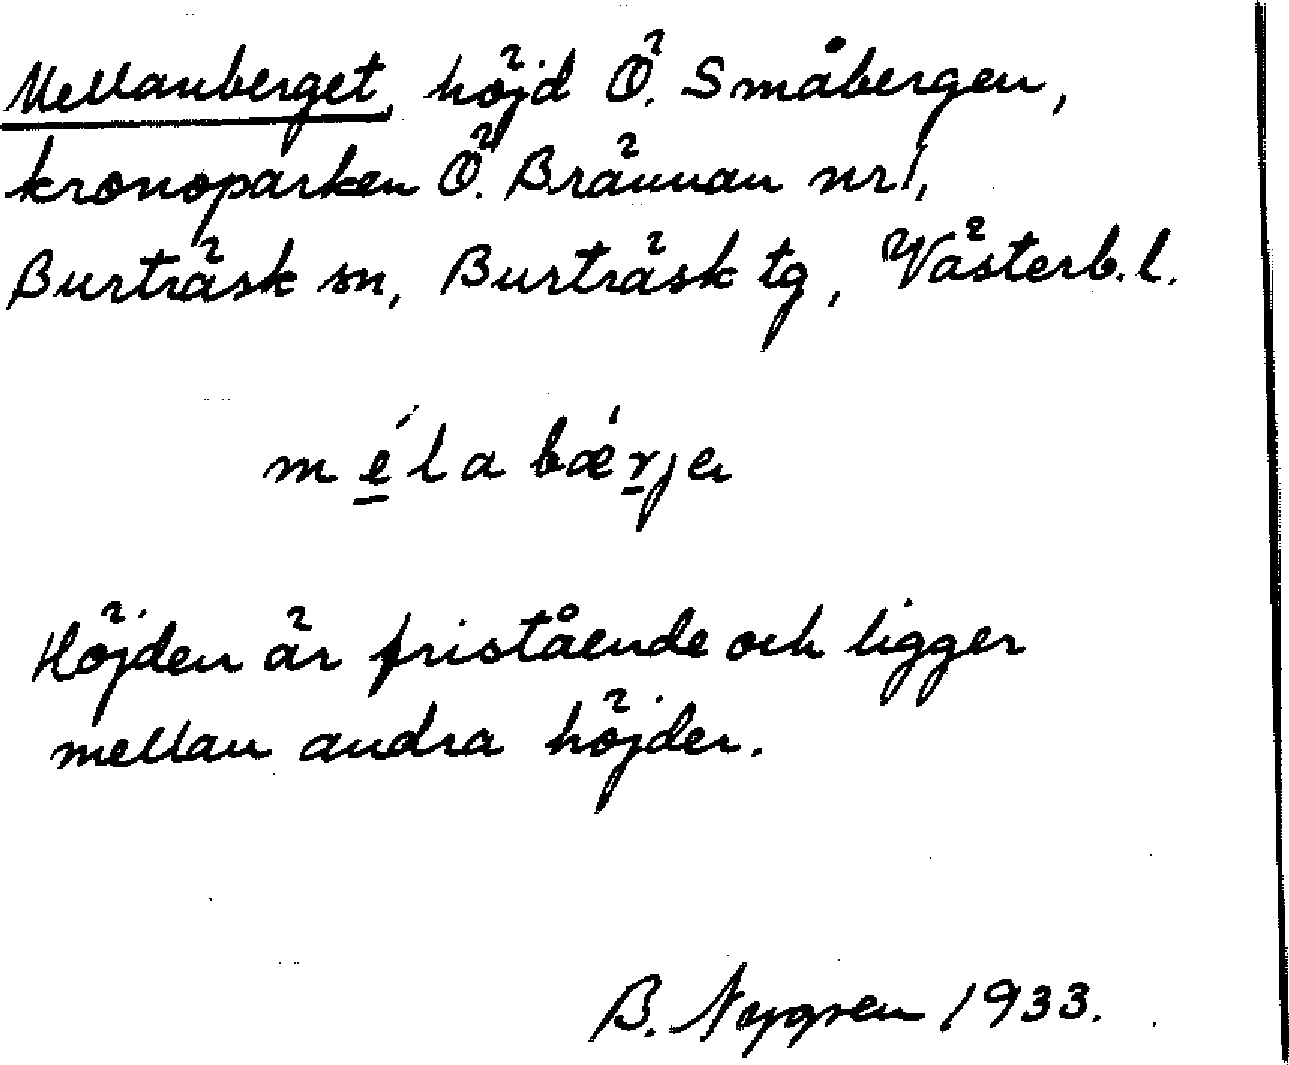 Mellanberget, höjd Ö. Småbergen,
kronoparken Ö. Brännan nr 1,
Burträsk sn, Burträsk tg, Västerb. l.
mé̲la bǽr̲ja
Höjden är fristående och ligger
mellan andra höjder.
B. Nygren 1933.